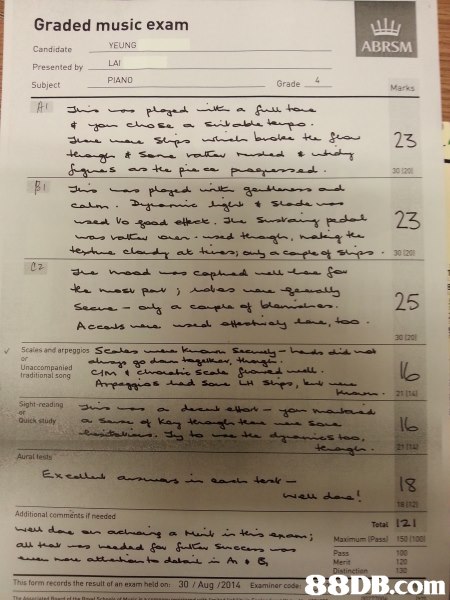 Graded music exam
ABRSM
Candidate YEUNG
Presented by LAI
Subject PIANO Grade 4
Marks
A1 This was played with a full tone
& you chose a suitable tempo.
There were slips which broke the flow
though & some rather rushed & untidy
figures as the piece progressed. 23
30 (20)
B1 This was played with gentleness and
calm. Dynamic light & shade was
used to good effect. The sustaining pedal
was rather over-used though, making the
texture cloudy at times; only a couple of slips. 23
30 (20)
C2 The mood was captured well here for
the most part; notes were generally
secure - only a couple of blemishes.
Accents were used effectively here, too. 25
30 (20)
Scales and arpeggios Scales were known securely - hands did not
or always go down together, though.
Unaccompanied traditional song C#m & chromatic scale flowed well.
Arpeggios had some LH slips, but were
known. 16
21 (14)
Sight-reading This was a decent effort - you maintained
or a sense of key though there were some
Quick study hesitations. Try to use the dynamics too,
though. 16
21 (14)
Aural tests
Excellent answers in each test -
well done! 18
18 (12)
Additional comments if needed
Total 121
well done on achieving a Merit in this exam;
Maximum (Pass) 150 (100)
all that was needed for further success was
Pass 100
even more attention to detail in A & B.
Merit 120
Distinction 130
This form records the result of an exam held on: 30 / Aug / 2014 Examiner code:
88DB.com